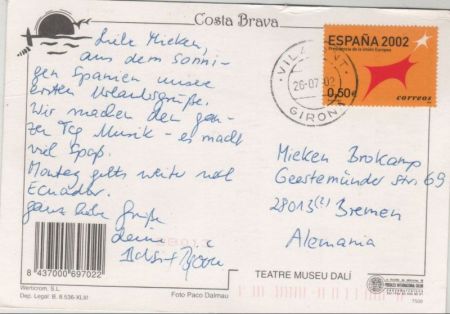 Costa Brava
Liebe Mieken,
aus dem sonni-
gen Spanien unsere
ersten Urlaubsgrüße.
Wir machen den gan-
zen Tag Musik - es macht
viel Spaß.
Montag geht's weiter nach
Ecuador.
ganz liebe Grüße
deine
8 437000 697022
Wertcrom, S.L.
Dep. Legal: B. 8.536-XLIII
Foto Paco Dalmau
ESPAÑA 2002
Presidencia de la Unión Europea
0,50€
correos
26-07-02
GIRONA
Mieken Brokamp
Geestemünder Str. 69
28013 (!) Bremen
Alemania
TEATRE MUSEU DALÍ